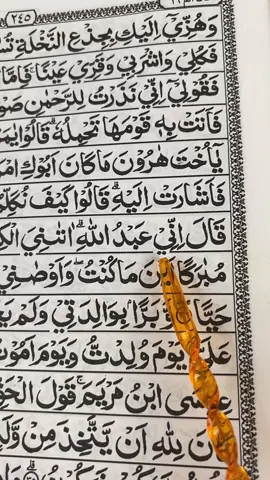 ٢٤٥
وَهُزِّيْۤ اِلَيْكِ بِجِذْعِ النَّخْلَةِ
فَكُلِيْ وَاشْرَبِيْ وَقَرِّيْ عَيْنًا ۚ فَاِمَّا
فَقُوْلِيْۤ اِنِّيْ نَذَرْتُ لِلرَّحْمٰنِ
فَاَتَتْ بِهٖ قَوْمَهَا تَحْمِلُهٗ ؕ قَالُوْا
يٰۤاُخْتَ هٰرُوْنَ مَا كَانَ اَبُوْكِ
فَاَشَارَتْ اِلَيْهِ ؕ قَالُوْا كَيْفَ
قَالَ اِنِّيْ عَبْدُ اللّٰهِ ؕ اٰتٰىنِيَ
مُبٰرَكًا مَا كُنْتُ ۪ وَاَوْصٰنِيْ
بَرًّۢا بِوَالِدَتِيْ وَلَمْ
يَوْمَ وُلِدْتُّ وَيَوْمَ اَمُوْتُ
ابْنُ مَرْيَمَ ۚ قَوْلَ
لِلّٰهِ اَنْ يَّتَّخِذَ مِنْ